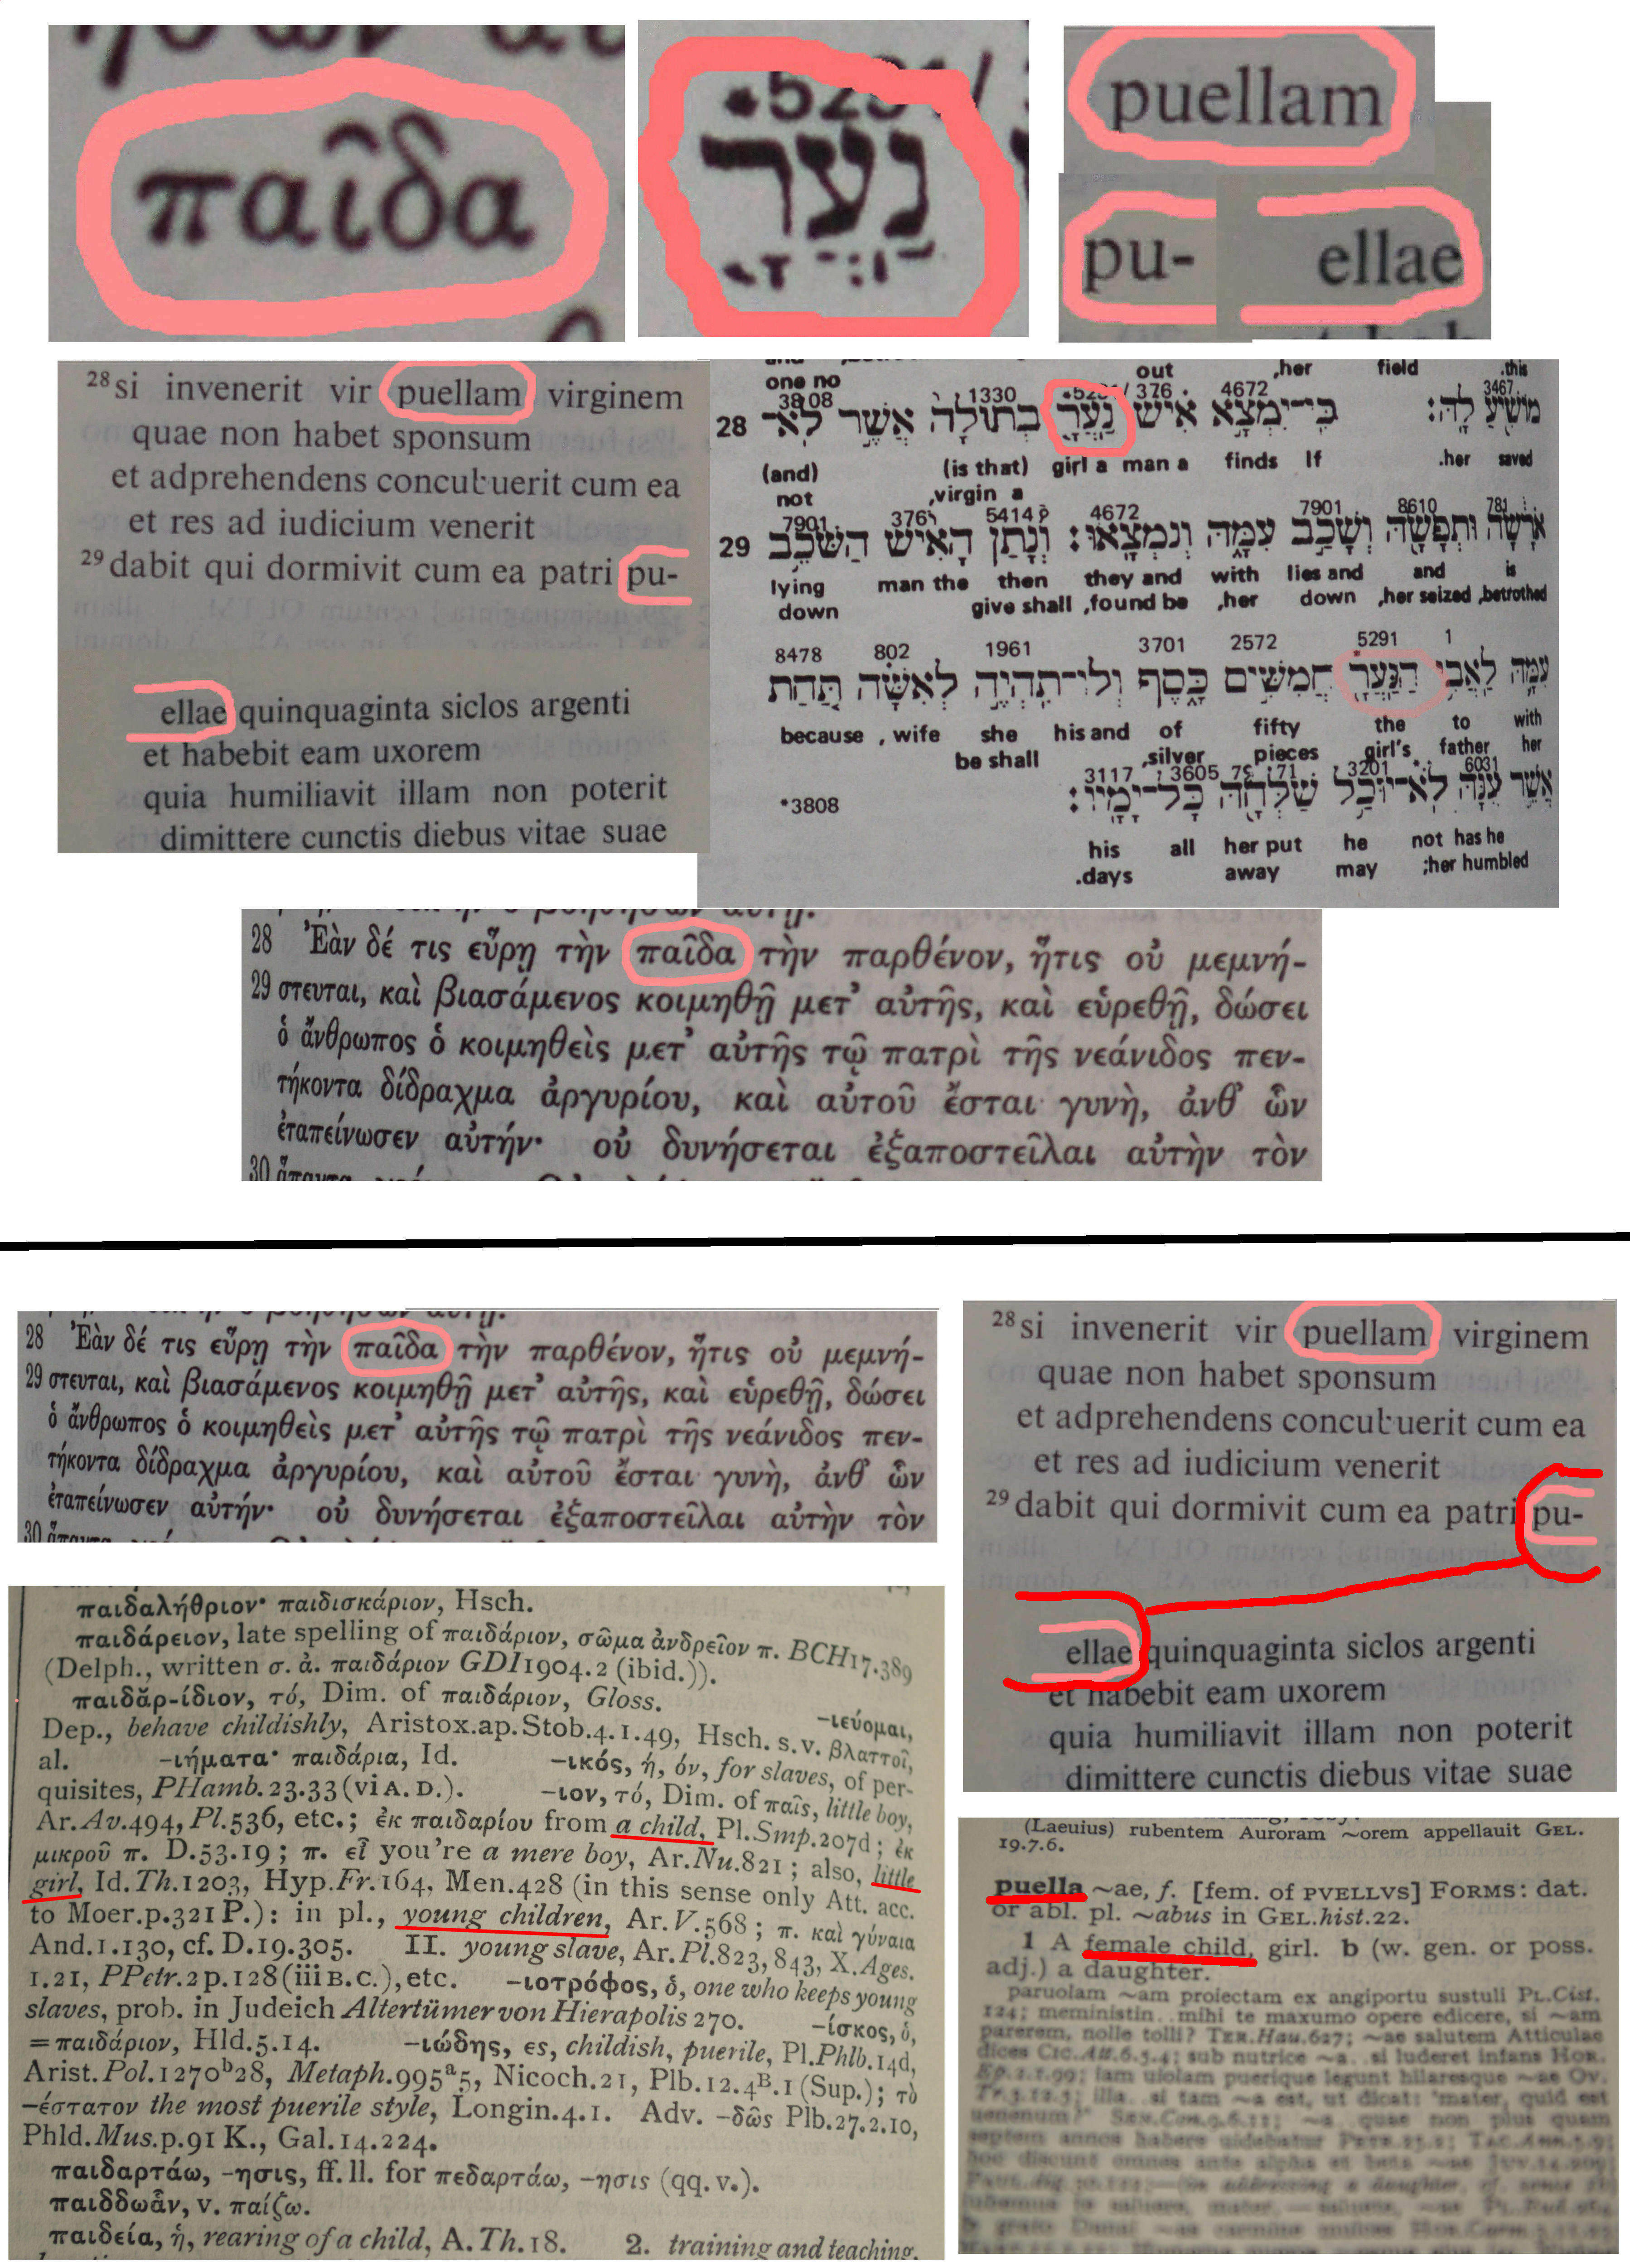 παῖδα
נַעֲרָ
puellam
pu- ellae
28 si invenerit vir puellam virginem
quae non habet sponsum
et adprehendens concubuerit cum ea
et res ad iudicium venerit
29 dabit qui dormivit cum ea patri pu-
ellae quinquaginta siclos argenti
et habebit eam uxorem
quia humiliavit illam non poterit
dimittere cunctis diebus vitae suae
out ,her field .this
one no
3808 1330 376 4672 3467
מוֹשִׁיעַ לָהּ׃
28 כִּי־יִמְצָא אִישׁ נַעֲרָ בְתוּלָה אֲשֶׁר לֹא־
(and) (is that) girl a man a finds If .her saved
not ,virgin a
7901 376 5414 4672 7901 8610 781
אֹרָשָׂה וּתְפָשָׂהּ וְשָׁכַב עִמָּהּ וְנִמְצָאוּ׃
29 וְנָתַן הָאִישׁ הַשֹּׁכֵב
lying man the then they and with lies and and is
down give shall ,found be ,her down ,her seized ,betrothed
8478 802 1961 3701 2572 5291 1
עִמָּהּ לַאֲבִי הַנַּעֲרָ חֲמִשִּׁים כָּסֶף וְלוֹ־תִהְיֶה לְאִשָּׁה תַּחַת
because , wife she his and of fifty the to with
be shall ,silver pieces girl's father her
3117 3605 7971 3201 6031
אֲשֶׁר עִנָּהּ לֹא־יוּכַל שַׁלְּחָהּ כָּל־יָמָיו׃
*3808
his all her put he not has he
.days away may ;her humbled
28 Ἐὰν δέ τις εὕρῃ τὴν παῖδα τὴν παρθένον, ἥτις οὐ μεμνή-
29 στευται, καὶ βιασάμενος κοιμηθῇ μετ’ αὐτῆς, καὶ εὑρεθῇ, δώσει
ὁ ἄνθρωπος ὁ κοιμηθεὶς μετ’ αὐτῆς τῷ πατρὶ τῆς νεάνιδος πεν-
τήκοντα δίδραχμα ἀργυρίου, καὶ αὐτοῦ ἔσται γυνὴ, ἀνθ’ ὧν
ἐταπείνωσεν αὐτήν· οὐ δυνήσεται ἐξαποστεῖλαι αὐτὴν τὸν
30
28 Ἐὰν δέ τις εὕρῃ τὴν παῖδα τὴν παρθένον, ἥτις οὐ μεμνή-
29 στευται, καὶ βιασάμενος κοιμηθῇ μετ’ αὐτῆς, καὶ εὑρεθῇ, δώσει
ὁ ἄνθρωπος ὁ κοιμηθεὶς μετ’ αὐτῆς τῷ πατρὶ τῆς νεάνιδος πεν-
τήκοντα δίδραχμα ἀργυρίου, καὶ αὐτοῦ ἔσται γυνὴ, ἀνθ’ ὧν
ἐταπείνωσεν αὐτήν· οὐ δυνήσεται ἐξαποστεῖλαι αὐτὴν τὸν
30
28 si invenerit vir puellam virginem
quae non habet sponsum
et adprehendens concubuerit cum ea
et res ad iudicium venerit
29 dabit qui dormivit cum ea patri pu-
ellae quinquaginta siclos argenti
et habebit eam uxorem
quia humiliavit illam non poterit
dimittere cunctis diebus vitae suae
παιδαλήθριον· παιδισκάριον, Hsch.
παιδάρειον, late spelling of παιδάριον, σῶμα ἀνδρεῖον π. BCH17.389
(Delph., written σ. ἀ. παιδάριον GDI1904.2 (ibid.)).
παιδᾰρ-ίδιον, τό, Dim. of παιδάριον, Gloss. –ιεύομαι,
Dep., behave childishly, Aristox.ap.Stob.4.1.49, Hsch. s.v. βλαττοῖ,
al. –ιήματα· παιδάρια, Id. –ικός, ή, όν, for slaves, of per-
quisites, PHamb.23.33 (vi A.D.). –ιον, τό, Dim. of παῖς, little boy,
Ar.Av.494, Pl.536, etc.; ἐκ παιδαρίου from a child, Pl.Smp.207d; ἐκ
μικροῦ π. D.53.19; π. εἶ you're a mere boy, Ar.Nu.821; also, little
girl, Id.Th.1203, Hyp.Fr.164, Men.428 (in this sense only Att. acc.
to Moer.p.321 P.): in pl., young children, Ar.V.568; π. καὶ γύναια
And.1.130, cf. D.19.305. II. young slave, Ar.Pl.823, 843, X.Ages.
1.21, PPetr.2p.128 (iii B.C.), etc. –ιοτρόφος, ὁ, one who keeps young
slaves, prob. in Judeich Altertümer von Hierapolis 270. –ίσκος, ὁ,
= παιδάριον, Hld.5.14. –ιώδης, ες, childish, puerile, Pl.Phlb.14d,
Arist.Pol.1270b28, Metaph.995a5, Nicoch.21, Plb.12.4B.1 (Sup.); τὸ
–έστατον the most puerile style, Longin.4.1. Adv. –δῶς Plb.27.2.10,
Phld.Mus.p.91 K., Gal.14.224.
παιδαρτάω, –ησις, ff. ll. for πεδαρτάω, –ησις (qq. v.).
παιδδωἅν, v. παίζω.
παιδεία, ἡ, rearing of a child, A.Th.18. 2. training and teaching,
(Laeuius) rubentem Auroram ~orem appellauit GEL.
19.7.6.
puella ~ae, f. [fem. of PVELLVS] FORMS: dat.
or abl. pl. ~abus in GEL.hist.22.
1 A female child, girl. b (w. gen. or poss.
adj.) a daughter.
paruolam ~am proiectam ex angiportu sustuli PL.Cist.
124; meministin.. mihi te maxumo opere edicere, si ~am
parerem, nolle tolli? TER.Hau.627; ~ae salutem Atticulae
dices CIC.Att.6.5.4; sub nutrice ~a.. si luderet infans HOR.